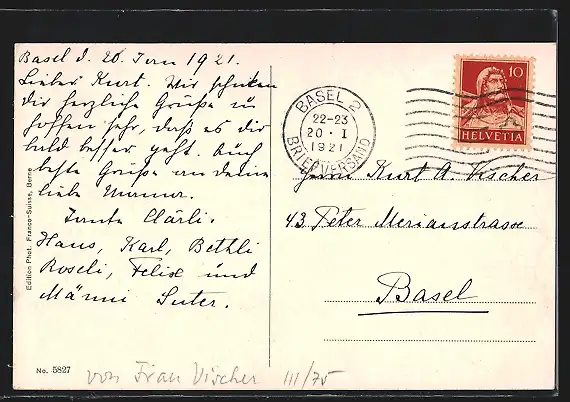 Basel d. 20. Jenn 1921.
Lieber Kurt. Wir schicken
dir herzliche Grüsse u
hoffen sehr, dass es dir
bald besser geht. Auch
beste Grüsse an deine
liebe Mamma.
Tante Clärli.
Hans, Karl, Bethli
Roseli, Felix und
Männi Suter.
Edition Phot. Franco-Suisse, Berne
No. 5827
von Frau Vischer III/75
BASEL 2
22-23
20. I
1921
BRIEFVERSAND
10
HELVETIA
Herrn Kurt A. Vischer
43 Peter Merianstrasse
Basel